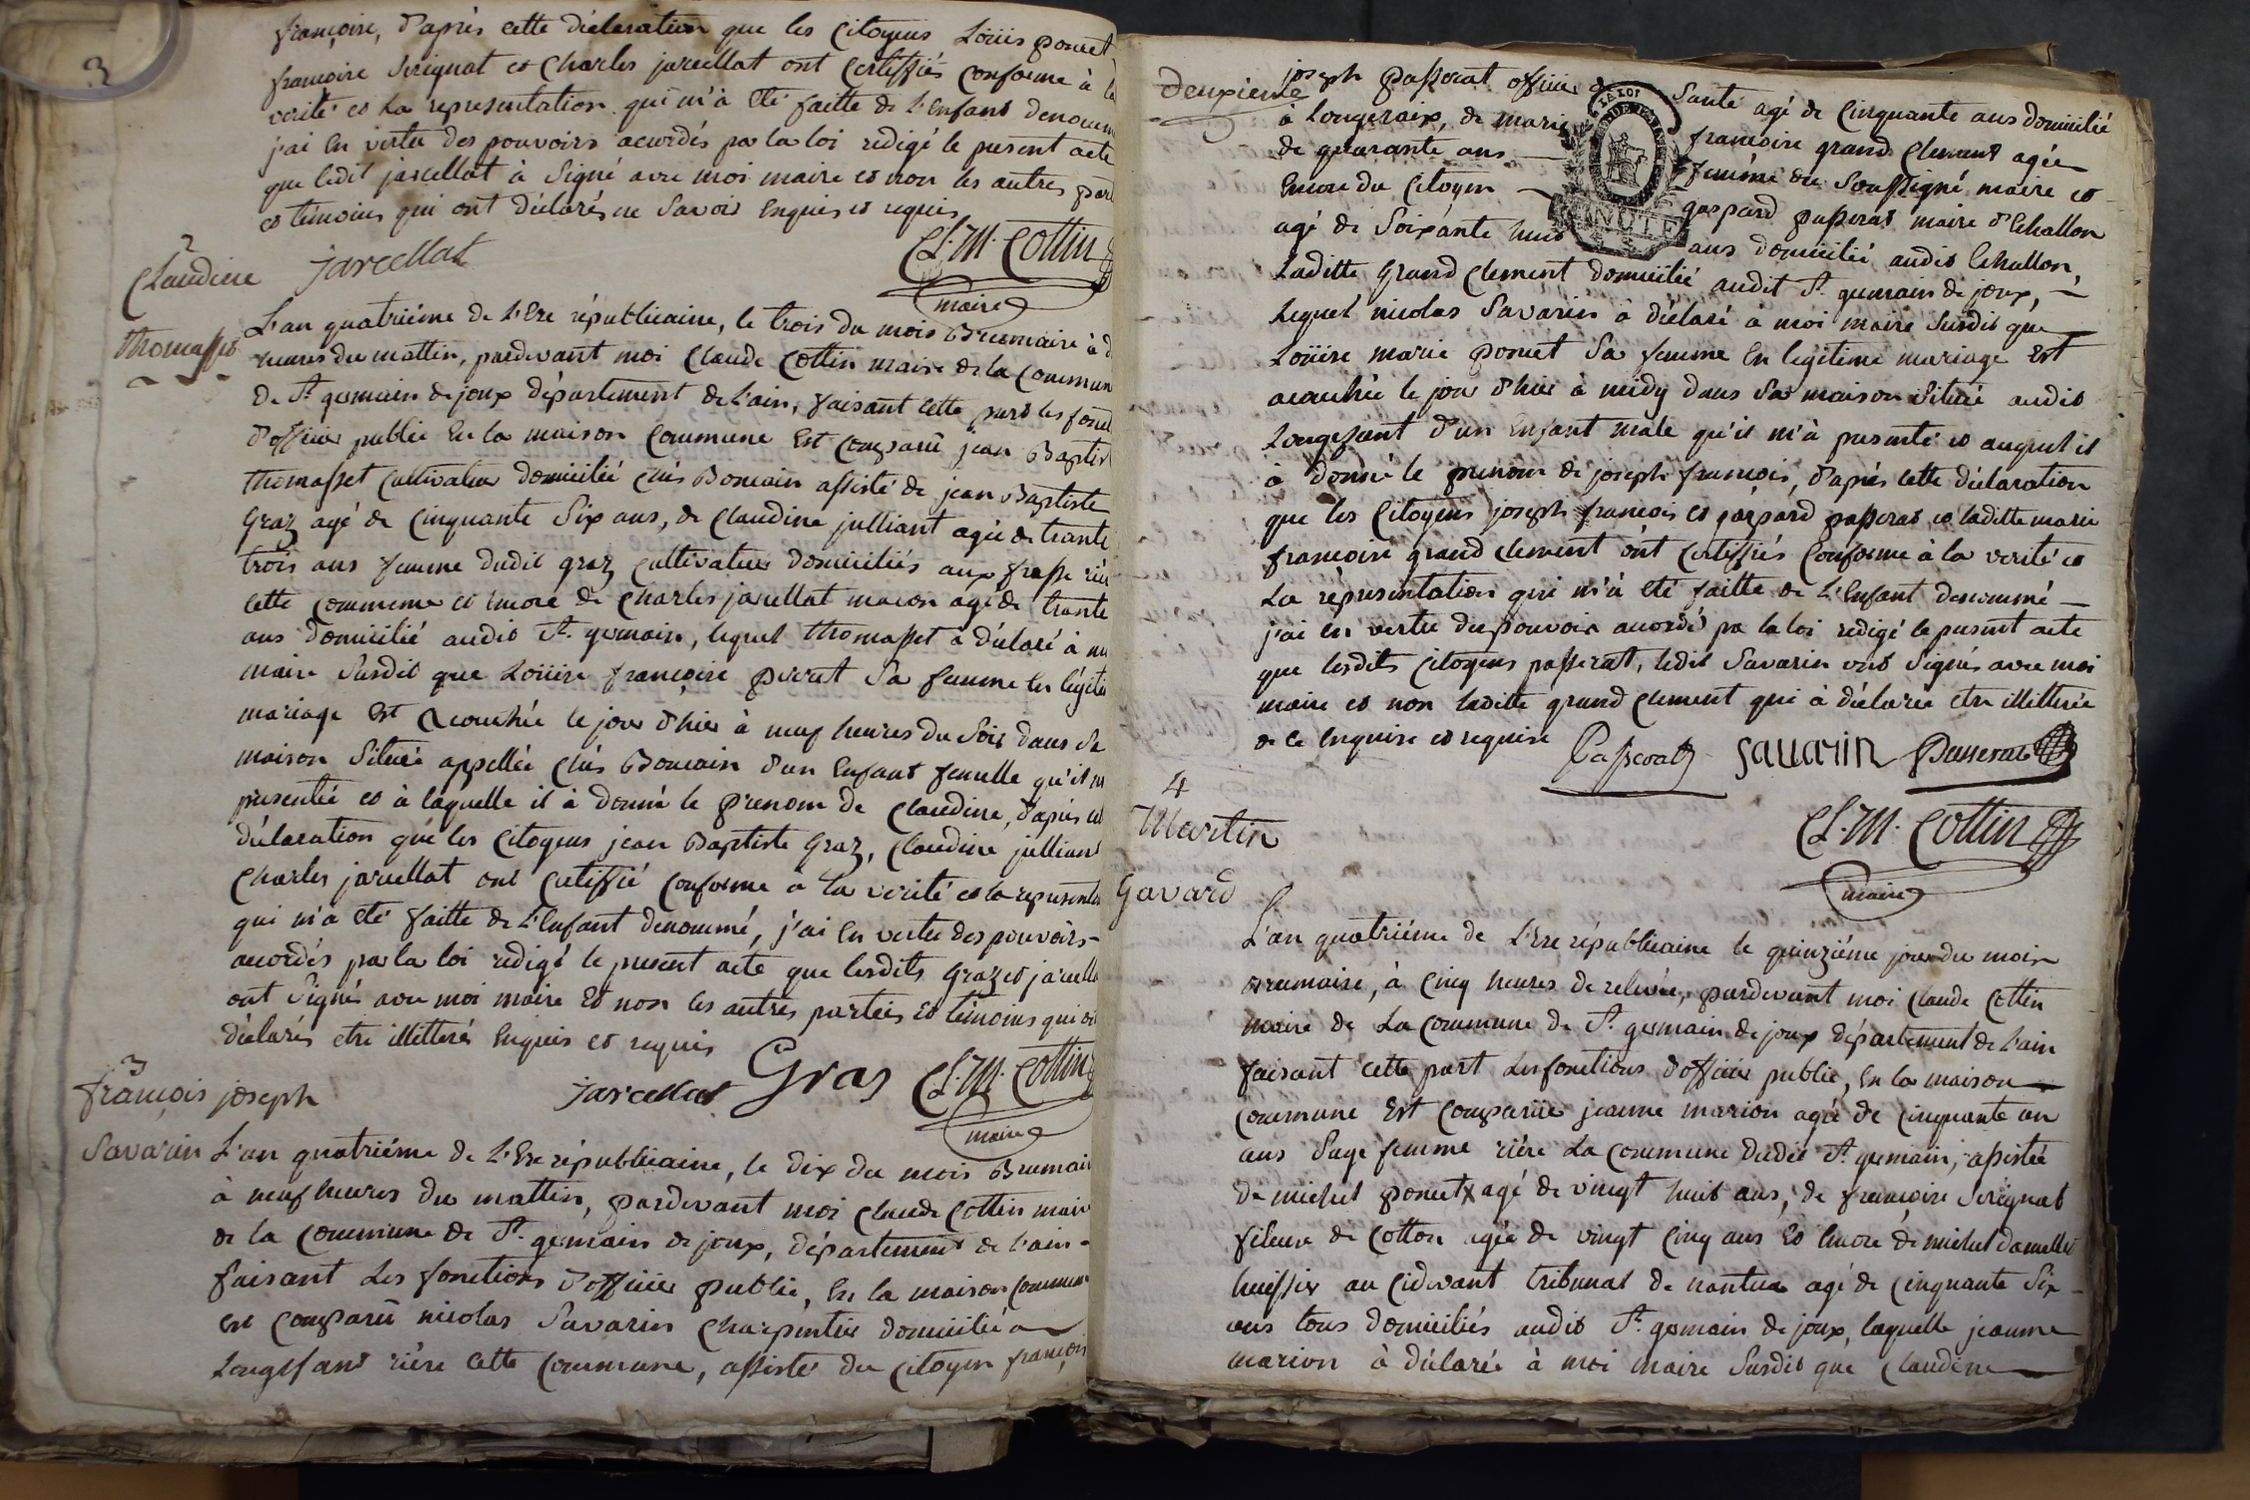 3
françoise, d'après cette déclaration que les Citoyens Loüis ponet
françoise Serignat et Charles jarcellat ont Certiffiés Conforme à la
verité et La representation qui m'à Eté faitte de L'Enfant denommé
j'ai En vertu des pouvoirs acordés par la loi redigé le present acte
que ledit jarcellat à Signé avec moi maire et non les autres part
et témoins qui ont déclarés ne Savoir Enquis et requis
jarcellat
Cl. M. Cottin
maire
2
Claudine
thomasset
L'an quatriéme de L'Ere républicaine, le trois du mois Brumaire à d
heures du mattin, pardevant moi Claude Cottin maire de la Commun
De St. germain de joux département de L'ain, faisant cette part les fonct
d'officier public En la maison Commune Est Comparû jean Baptist
thomasset Cultivateur domicilié chés Bonvain assisté de jean Baptiste
Graz agé de Cinquante Six ans, de Claudine julliant agée de trante
trois ans femme dudit graz Cultivateur domiciliés aux frasse riér
cette Commune et Encore de Charles jarcellat macon agé de trante
ans domicilié audit St. germain, lequel thomasset à déclaré à m
maire Susdit que Loüise françoise Sa femme En légiti
mariage Est acouchée le jour d'hier à neuf heures du Soir dans Sa
maison Située appellée chés Bonvain d'un Enfant femelle qu'il m
présentée et à laquelle il à donné le prenom de Claudine, d'après cet
déclaration que les Citoyens jean Baptiste Graz, Claudine julliant
Charles jarcellat ont Certiffié Conforme à la verité et la représentat
qui m'à été faitte de L'Enfant denommé, j'ai En vertu des pouvoirs-
acordés par la loi redigé le présent acte que lesdits Graz et jarcella
ont Signés avec moi maire Et non les autres parties Et témoins qui on
déclarés etre illitterés Enquis et requis
jarcellat Gras Cl. M. Cottin
maire
3
françois joseph
Savarin
L'an quatriéme de L'Ere républicaine, le dix du mois Brumair
à neuf heures du mattin, pardevant moi Claude Cottin maire
de la Commune de St. germain de joux, département de L'ain-
faisant Les fonctions d'officier public, En la maison Commune
Est Comparû nicolas Savarin Charpentier domicilié à
Longefant rière cette Commune, assisté du Citoyen françois
deuxieme
joseph passerat officier de Santé agé de Cinquante ans domicilié
à Longeraix, de marie françoise grand Clement agée
de quarante ans femme du Soussigné maire et
Encore du Citoyen gaspard passerat maire d'Echallon
agé de Soixante huit ans domicilié audit Echallon,
Laditte Grand Clement domiciliée audit St. germain de joux,
Lequel nicolas Savarin à déclaré à moi maire Susdit que
Loüise marie ponet Sa femme En legitime mariage Est
acouchée le jour d'hier à midy dans Sa maison Située audit
Longefant d'un Enfant male qu'il m'à presenté et auquel il
à donné le prenom de joseph françois, d'après cette déclaration
que les Citoyens joseph françois et gaspard passerat et laditte marie
françoise grand Clement ont Certiffiés Conforme à la verité et
La réprésentation qui m'à été faitte de L'Enfant denommé
j'ai En vertu du pouvoir acordé par la loi redigé le présent acte
que lesdits Citoyens passerat, ledit Savarin ont Signés avec moi
maire et non laditte grand Clement qui à déclarée etre illitterée
de ce Enquise et requise
Passerat Savarin Passerat
LA LOI
MINUTE
Cl. M. Cottin
maire
4
Martin
Gavard
L'an quatriéme de L'Ere républicaine le quinziéme jour du mois
Brumaire, à Cinq heures de relevée, pardevant moi Claude Cottin
maire de La Commune de St. germain de joux département de L'ain
faisant cette part Les fonctions d'officier public, En la maison
Commune Est Comparüe jeanne marion agée de Cinquante un
ans Sage femme riére La Commune dudit St. germain, assistée
de michel ponet agé de vingt huit ans, de françoise Serignat
fileuse de Cotton agée de vingt Cinq ans Et Encore de michel
huissier au Cidevant tribunal de nantua agé de Cinquante Six
ans tous domiciliés audit St. germain de joux, laquelle jeanne
marion à déclarée à moi maire Susdit que Claudine